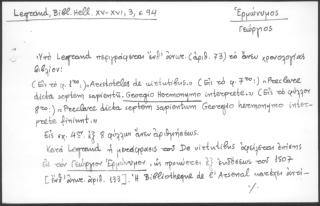 Legrand, Bibl. Hell. XV-XVI, 3, σ. 94
Ἑρμώνυμος
Γεώργιος
Ὑπὸ Legrand περιγράφεται (ἀριθ. 73) τὸ ἄνω χρονολογίας
βιβλίον:
(Εἰς τὸ φ. 1ον:) «Aristoteles de virtutibus.» (Εἰς τὸ φ. 7ον:) «Preclare
dicta septem sapientū. Georgio Hermonymo interprete.» (Εἰς τὸ φύλλον
8ον:) «Preclare dicta septem sapientum Georgio hermonymo inter-
prete finiunt.»
Εἰς σχ. 4ον ἐξ 8 φύλλων ἄνευ ἀριθμήσεως.
Κατὰ Legrand ἡ μετάφρασις τοῦ De virtutibus ὀφείλεται ἐπίσης
εἰς τὸν Γεώργιον Ἑρμώνυμον, ὡς προκύπτει ἐξ ἐκδόσεως τοῦ 1507
ἀριθ. 133]. Ἡ Bibliothèque de l'Arsenal κατέχει ἀντί-
%.